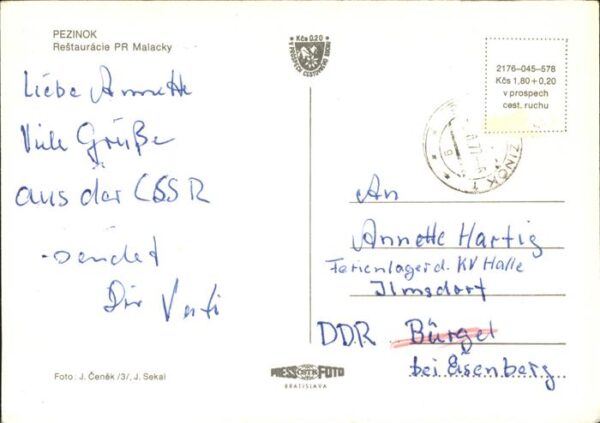 PEZINOK
Reštaurácie PR Malacky
Kčs 0,20
V PROSPECH CESTOVNÉHO RUCHU
2176-045-578
Kčs 1,80 + 0,20
v prospech
cest. ruchu
ZINOK 1
Liebe Annette
Viele Grüße
aus der CSSR
sendet
Dir Vati
An
Annette Hartig
Ferienlager d. KV Halle
Ilmsdorf
DDR Bürgel
bei Eisenberg
Foto: J. Čeněk /3/, J. Sekal
PRESSFOTO
BRATISLAVA